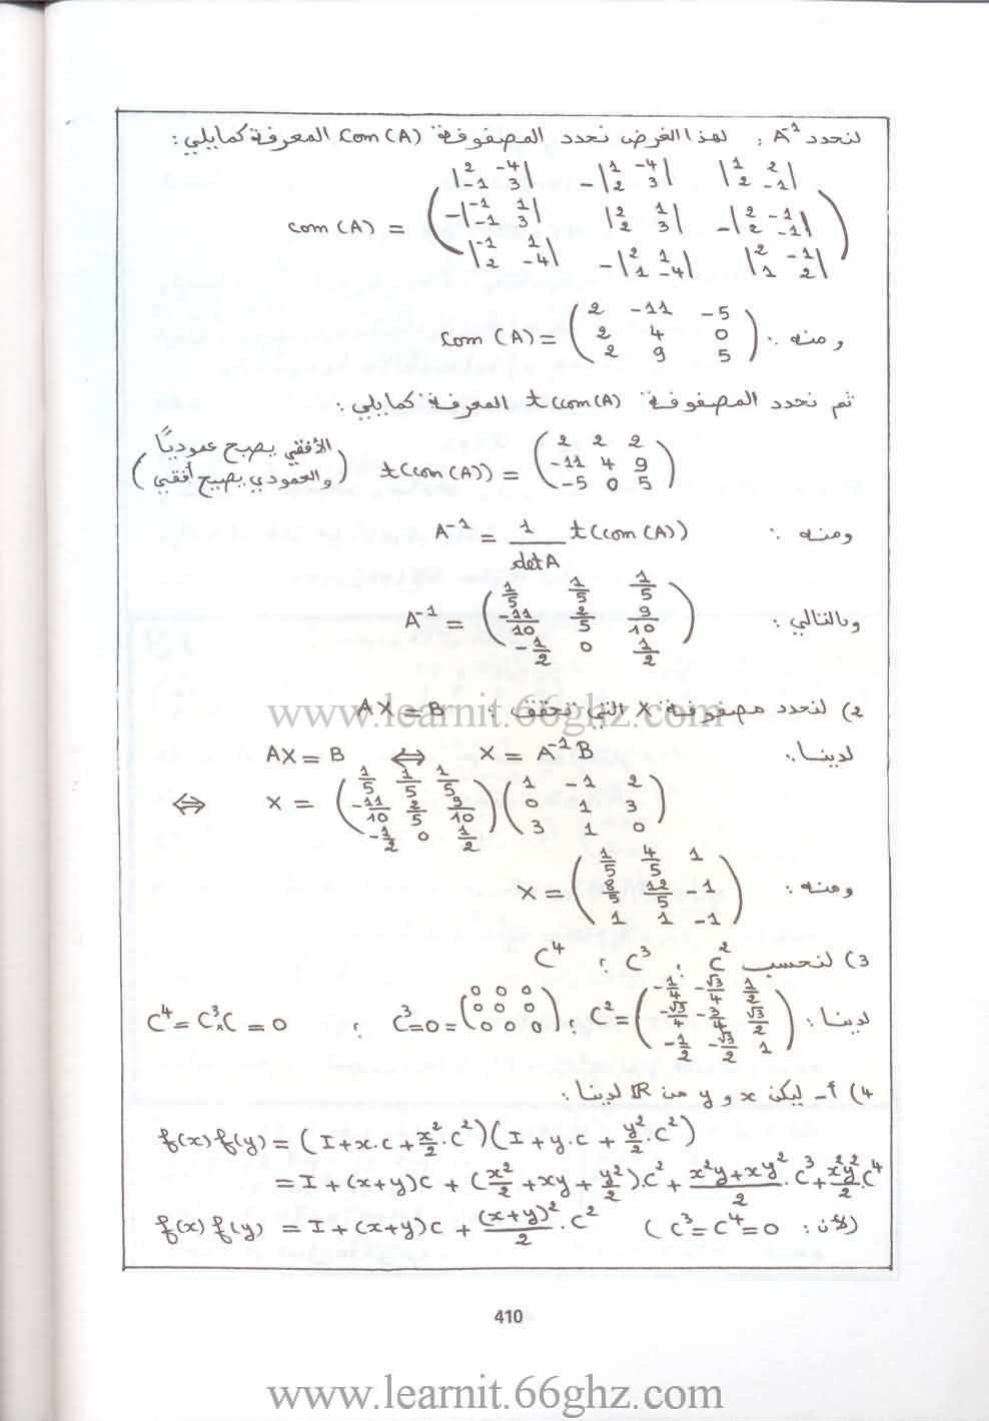 لنحدد A⁻¹ : لهذا الغرض نحدد المصفوفة com(A) المعرفة كمايلي :
com(A) = ( |2 -4; -1 3| -|1 -4; 2 3| |1 2; 2 -1|
-|-1 1; -1 3| |2 1; 2 3| -|2 -1; 2 -1|
|-1 1; 2 -4| -|2 1; 1 -4| |2 -1; 1 2| )
ومنه : com(A) = ( 2 -11 -5
2 4 0
2 9 5 )
ثم نحدد المصفوفة t(com(A) المعرفة كمايلي :
t(com(A)) = ( 2 2 2
-11 4 9
-5 0 5 )
(الأفقي يصبح عموديًا
والعمودي يصبح أفقي)
ومنه : A⁻¹ = 1/detA t(com(A))
وبالتالي : A⁻¹ = ( 1/5 1/5 1/5
-11/10 2/5 9/10
-1/2 0 1/2 )
2) لنحدد مصفوفة X التي تحقق : AX = B
www.learnit.66ghz.com
لدينا : AX = B ⇔ X = A⁻¹B
⇔ X = ( 1/5 1/5 1/5
-11/10 2/5 9/10
-1/2 0 1/2 ) ( 1 -1 2
0 1 3
3 1 0 )
ومنه : X = ( 1/5 4/5 1
8/5 12/5 -1
1 1 -1 )
3) لنحسب C² ؛ C³ ؛ C⁴
لدينا : C² = ( -1/4 -√3/4 1/2
-√3/4 -3/4 √3/2
-1/2 -√3/2 1 ) ؛ C³=0= ( 0 0 0
0 0 0
0 0 0 ) ؛ C⁴ = C³×C = 0
4) أ- ليكن x و y من IR لدينا :
f(x)f(y) = (I+x.c+x²/2.C²)(I+y.c+y²/2.C²)
= I+(x+y)C + (x²/2+xy+y²/2).C² + x²y+xy²/2.C³+x²y²/2.C⁴
f(x)f(y) = I+(x+y)C + (x+y)²/2.C² (لأن : C³=C⁴=0)
410
www.learnit.66ghz.com